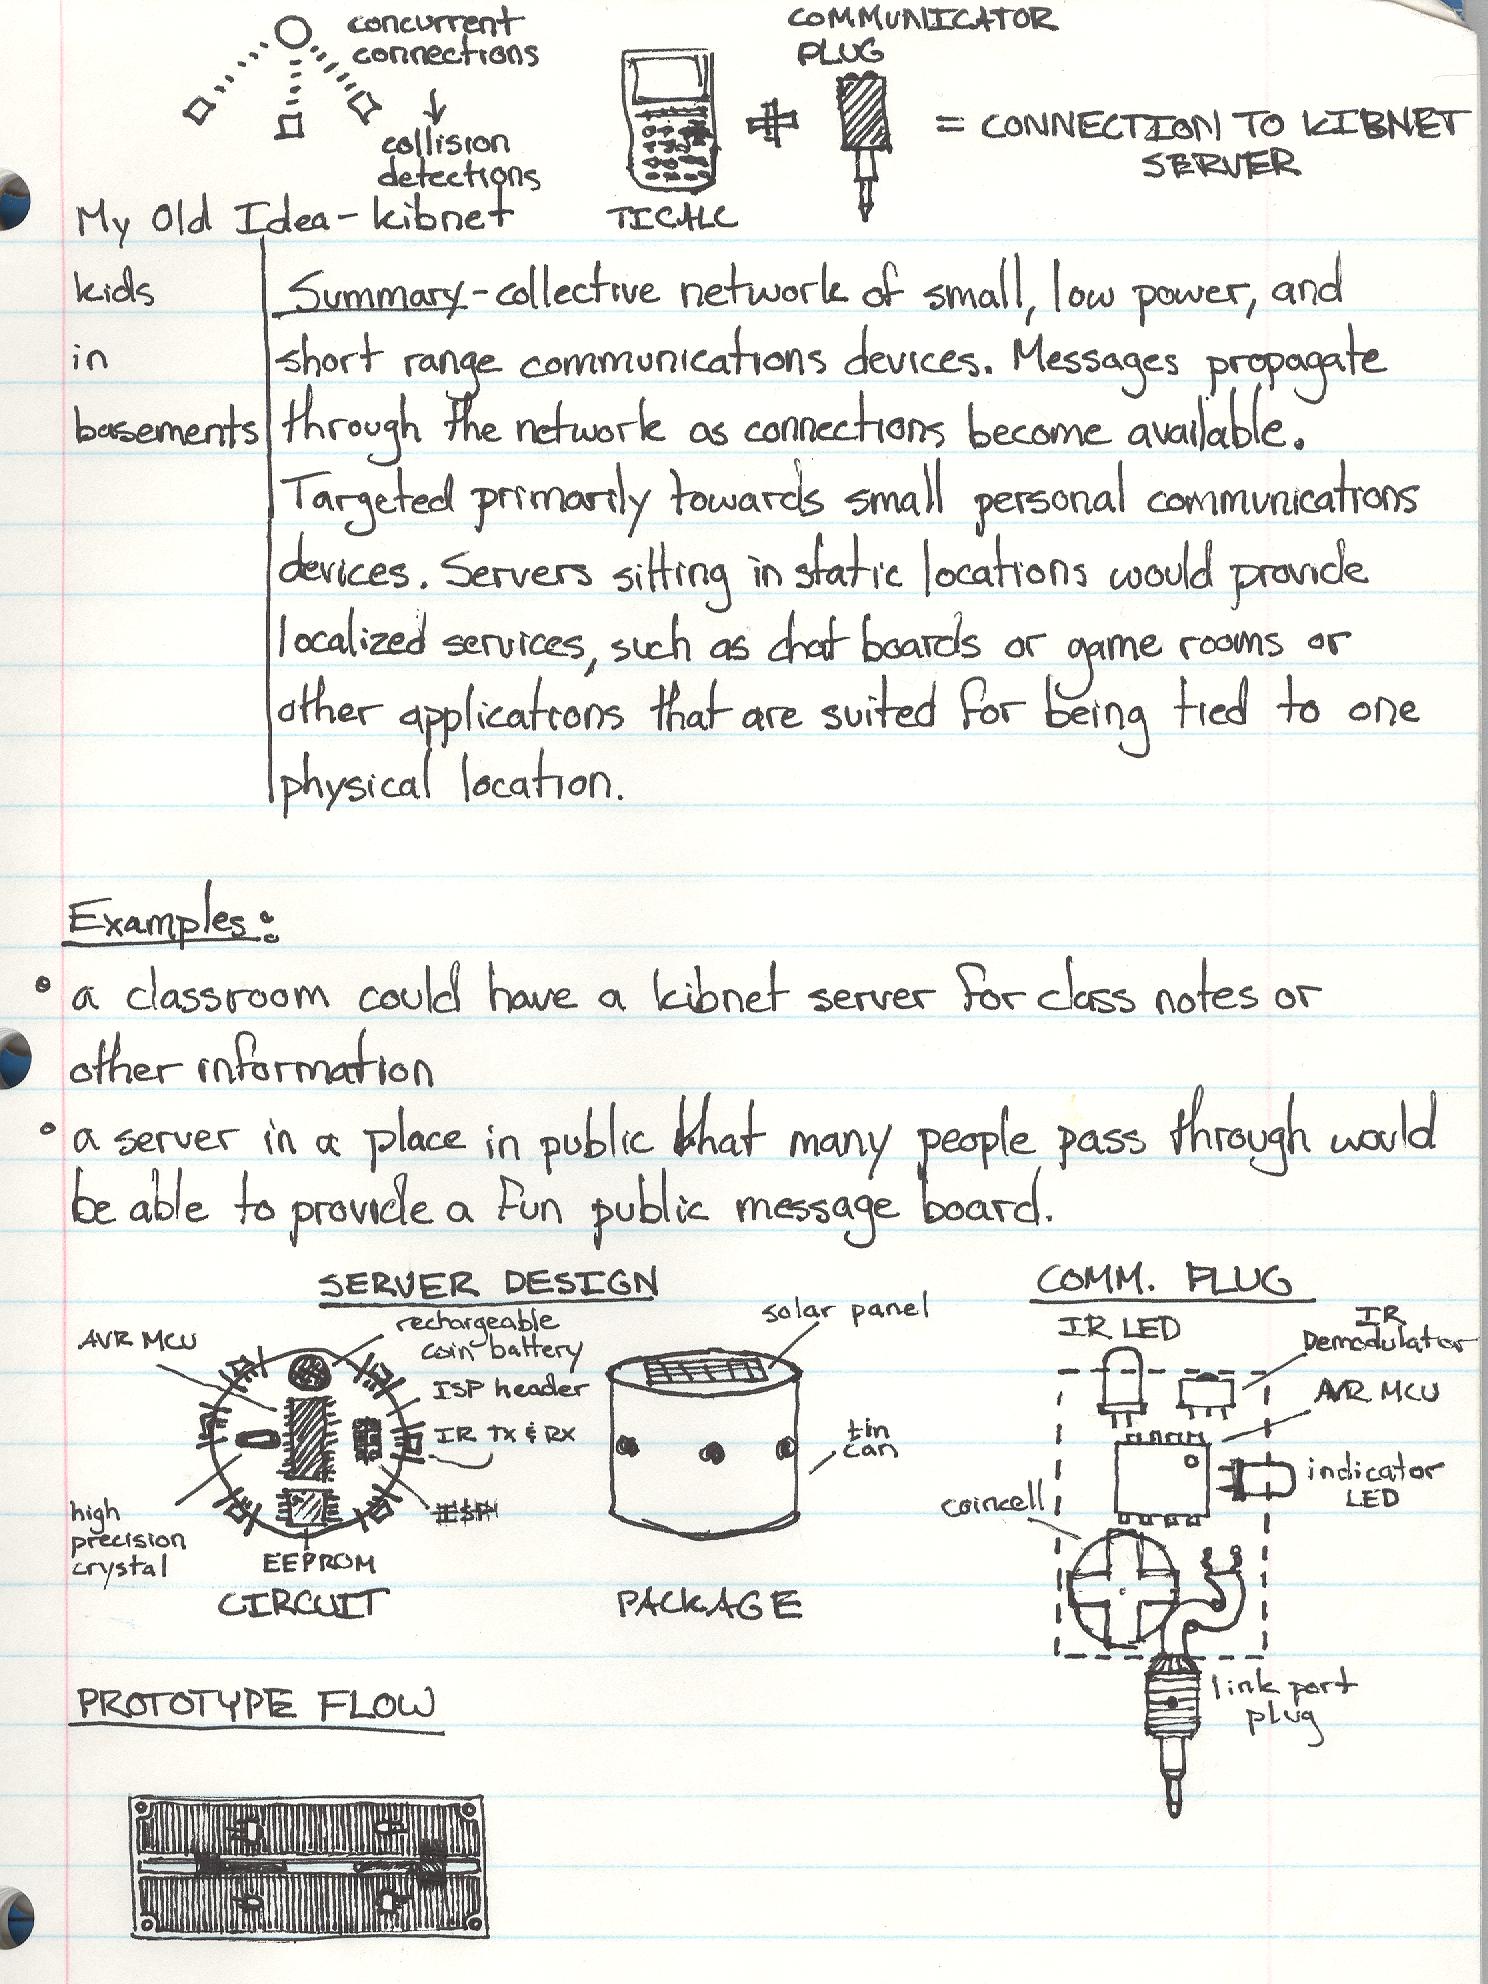 concurrent
connections
collision
detections
COMMUNICATOR
PLUG
= CONNECTION TO KIBNET
SERVER
TICALC
My Old Idea - kibnet
kids
in
basements
Summary - collective network of small, low power, and
short range communications devices. Messages propagate
through the network as connections become available.
Targeted primarily towards small personal communications
devices. Servers sitting in static locations would provide
localized services, such as chat boards or game rooms or
other applications that are suited for being tied to one
physical location.
Examples:
• a classroom could have a kibnet server for class notes or
other information
• a server in a place in public that many people pass through would
be able to provide a fun public message board.
SERVER DESIGN
AVR MCU
rechargeable
coin battery
ISP header
IR TX & RX
high
precision
crystal
EEPROM
CIRCUIT
solar panel
tin
can
PACKAGE
COMM. PLUG
IR LED
IR
Demodulator
AVR MCU
indicator
LED
coincell
link port
plug
PROTOTYPE FLOW